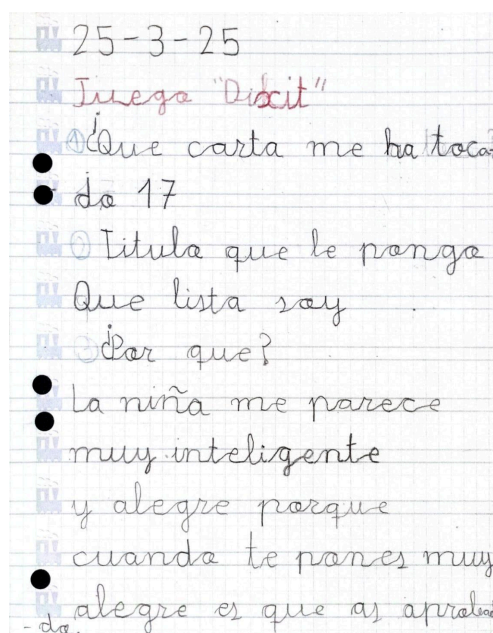 25-3-25
Juego "Dixit"
① ¿Que carta me ha toca-
do 17
② Titulo que le pongo
Que lista soy
③ ¿Por que?
La niña me parece
muy inteligente
y alegre porque
cuando te pones muy
alegre es que as aproba
-do.